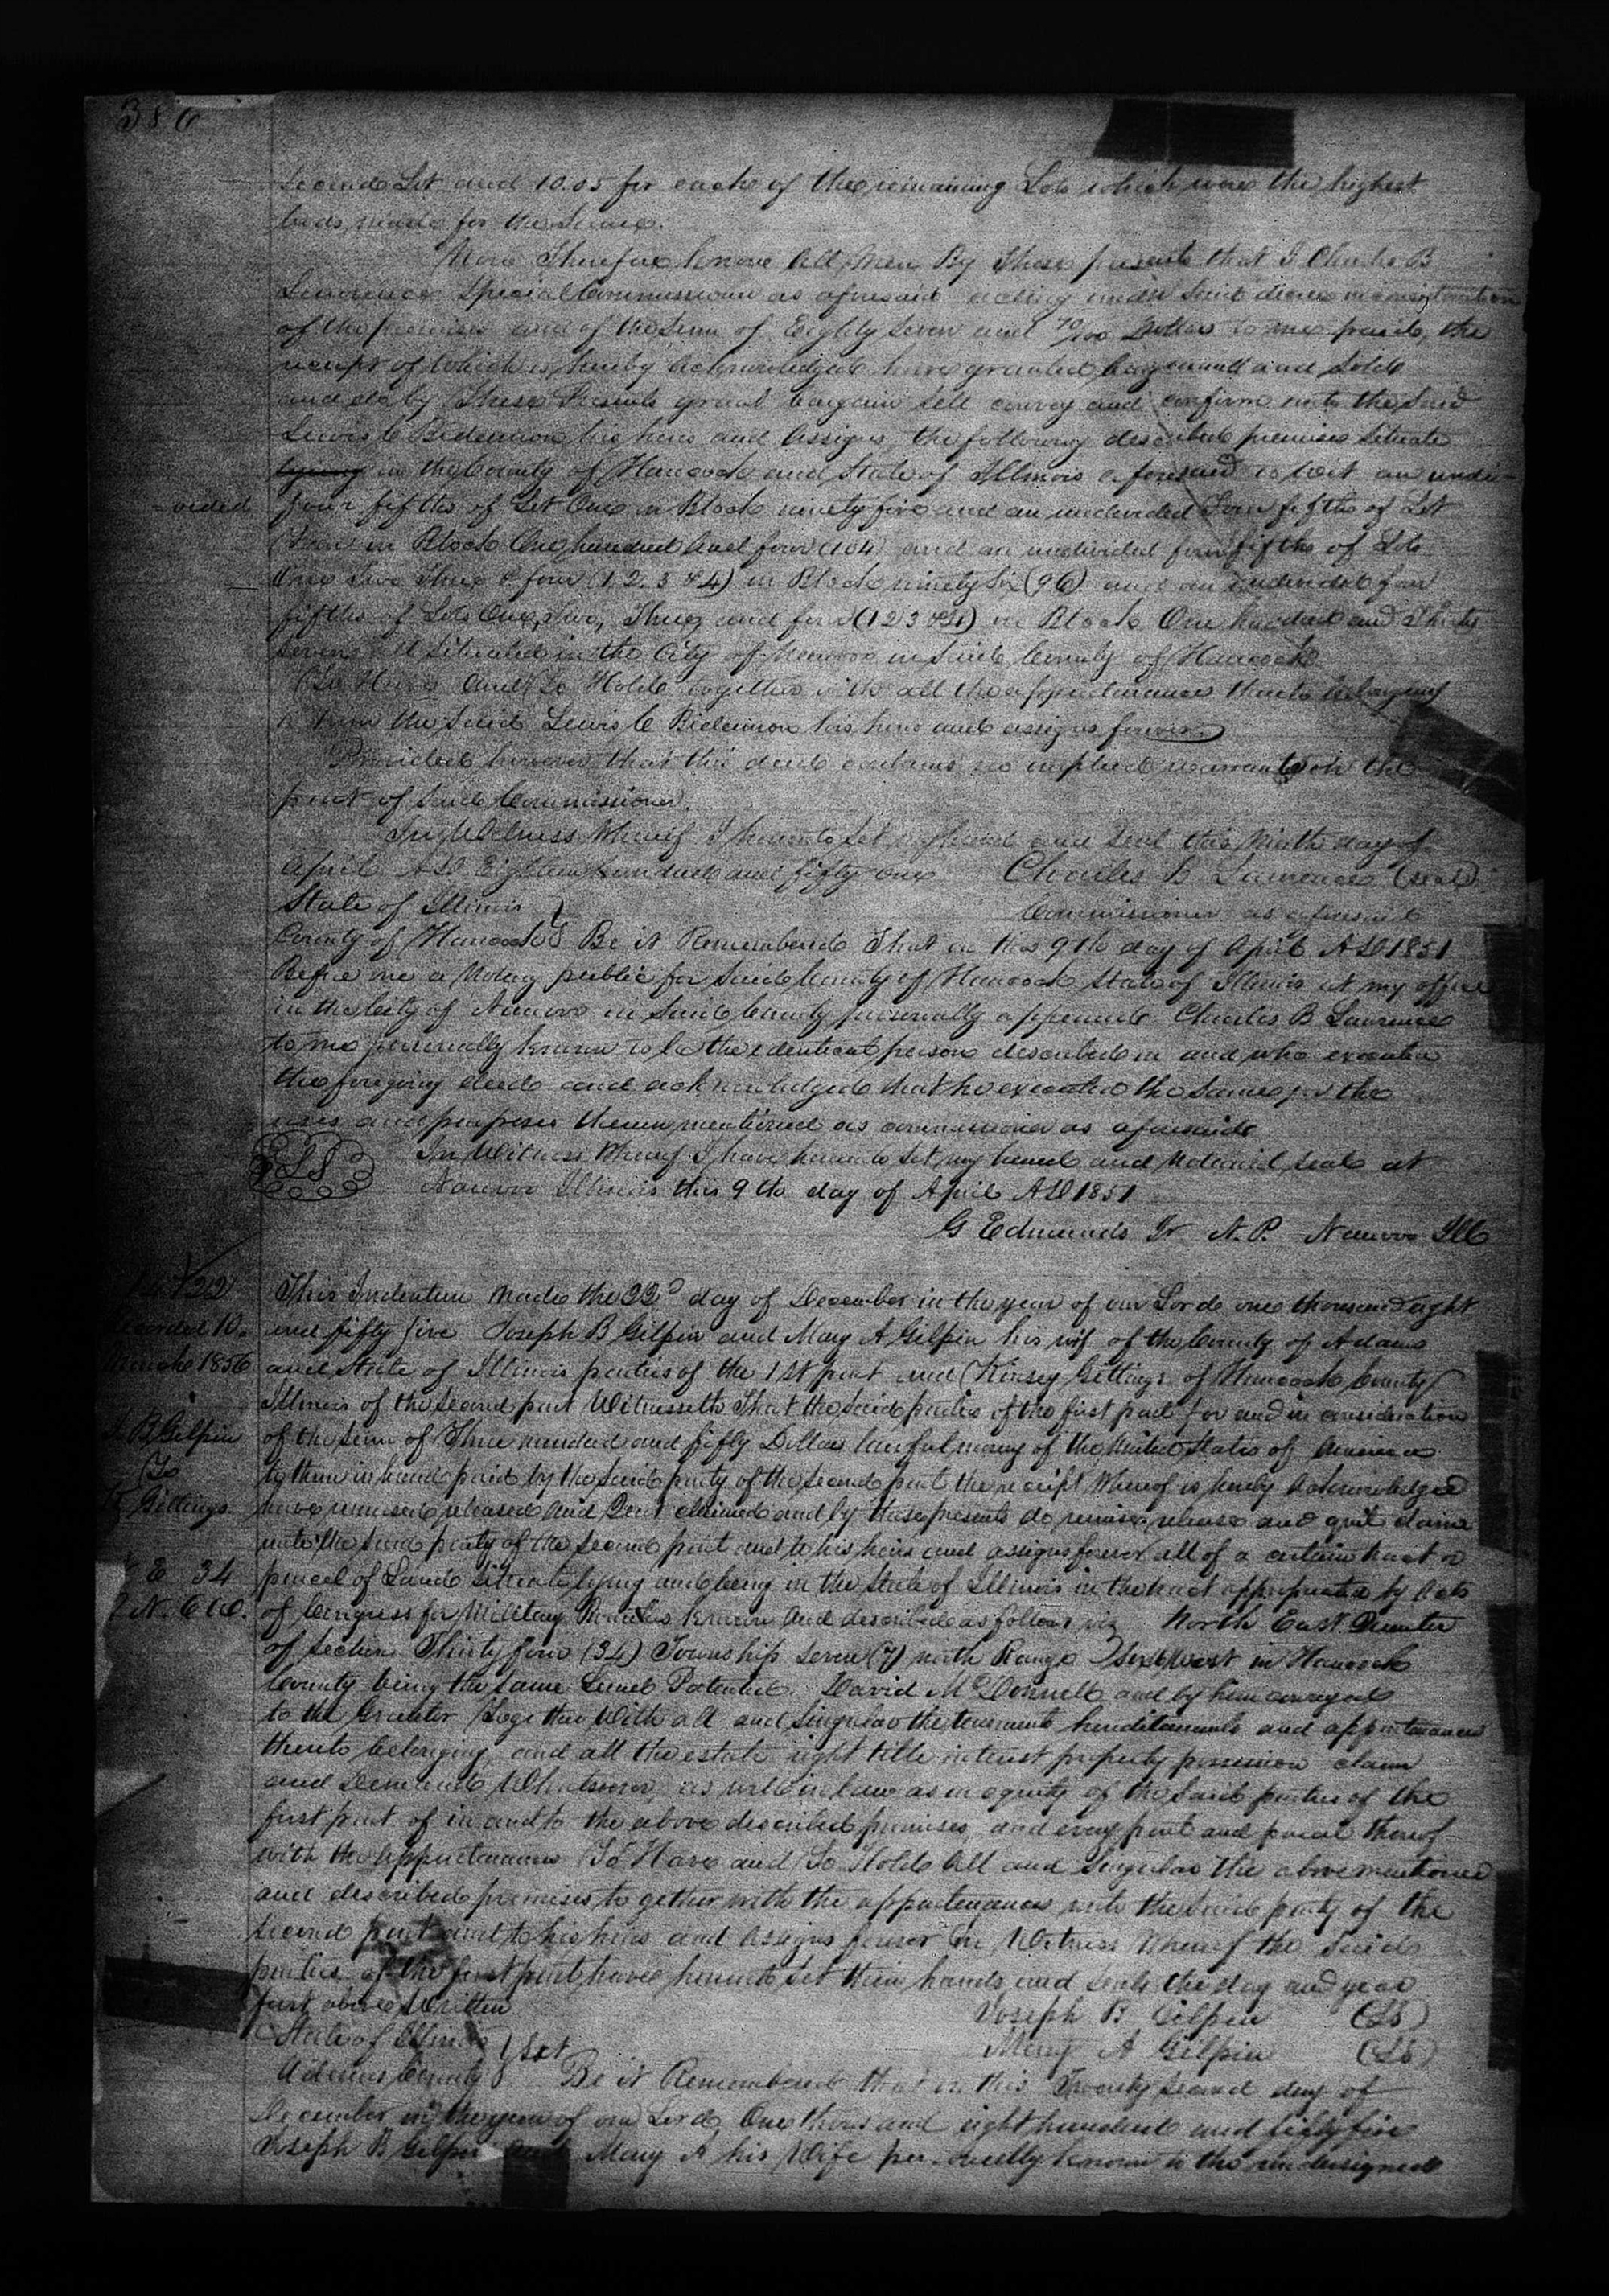 386
Second Lot and 10.05 for each of the remaining Lots which were the highest
bids made for the Same.
Now Therefore know All Men By These presents that I Charles B
Lawrence Special Commissioner as aforesaid acting under Said decree in consideration
of the premises and of the Sum of Eighty Seven and 70/100 Dollars to me paid, the
receipt of which is hereby acknowledged have granted bargained and Sold
and do by These Presents grant bargain Sell convey and confirm unto the Said
Lewis C Bidamon his heirs and Assigns the following described premises Situate
lying in the County of Hancock and State of Illinois aforesaid to wit an undi-
-vided four fifths of Lot One in Block ninety five and an undivided four fifths of Lot
Four in Block One hundred and four (104) and an undivided four fifths of Lots
One Two Three & four (1. 2. 3 & 4) in Block ninety Six (96) and an undivided four
fifths of Lots One, Two, Three, and four (1 2 3 & 4) in Block One hundred and Thirty
Seven All Situated in the City of Nauvoo in Said County of Hancock.
To Have And To Hold together with all the appurtenances thereto belonging
to him the Said Lewis C Bidamon his heirs and assigns forever.
Provided however that this deed contains no implied warranty on the
part of Said Commissioner.
In Witness Whereof I hereunto Set my hand and Seal this Ninth day of
April AD Eighteen hundred and fifty one Charles B Lawrence (seal)
State of Illinois } Commissioner as aforesaid
County of Hancock } Be it Remembered That on this 9th day of April AD 1851
Before me a Notary public for Said County of Hancock State of Illinois at my office
in the City of Nauvoo in Said County personally appeared Charles B Lawrence
to me personally known to be the identical person described in and who executed
the foregoing deed and acknowledged that he executed the Same for the
uses and purposes therein mentioned as commissioner as aforesaid
LS In Witness Whereof I have hereunto Set my hand and Notarial Seal at
Nauvoo Illinois this 9th day of April AD 1851
G Edmunds Jr N. P. Nauvoo Ill
This Indenture Made the 22d day of December in the year of our Lord one thousand eight
Recorded 10. and fifty five Joseph B Gilpin and Mary A Gilpin his wif of the County of Adams
March 1856 and State of Illinois parties of the 1st part and Kinsey Gittings of Hancock County
Illinois of the Second part Witnesseth That the Said parties of the first part for and in consideration
J. B Gilpin of the Sum of Three hundred and fifty Dollars lawful money of the United States of America
To to them in hand paid by the Said party of the Second part the receipt Whereof is hereby Acknowledged
K Gittings have remised released And Quit claimed and by these presents do remise release and quit claim
unto the Said party of the Second part and to his heirs and assigns forever all of a certain tract or
E 34 parcel of Land Situate lying and being in the State of Illinois in the tract appropriated by Acts
7 N. 6 W. of Congress for Military Bounties known And described as follows viz North East Quarter
of Section Thirty four (34) Township Seven (7) north Range Six West in Hancock
County being the Same Land Patented David McDonnell and by him conveyed
to the Grantor Together With all and Singular the tenements hereditaments and appurtenances
thereto belonging, and all the estate right title interest property possession claim
and Demand Whatsoever, as well in law as in equity of the Said parties of the
first part of in and to the above described premises, and every part and parcel thereof
with the Appurtenances To Have and To Hold All and Singular the above mentioned
and described premises together with the appurtenances unto the Said party of the
Second part and to his heirs and Assigns forever In Witness Whereof the Said
parties of the first part have hereunto Set their hands and Seals the day and year
first above Written Joseph B Gilpin (LS)
State of Illinois } Sct Mary A Gilpin (LS)
Adams County } Be it Remembered that on this Twenty Second day of
December in the year of our Lord, One thousand eight hundred and fifty five
Joseph B Gilpin and Mary A his Wife personally known to the undersigned